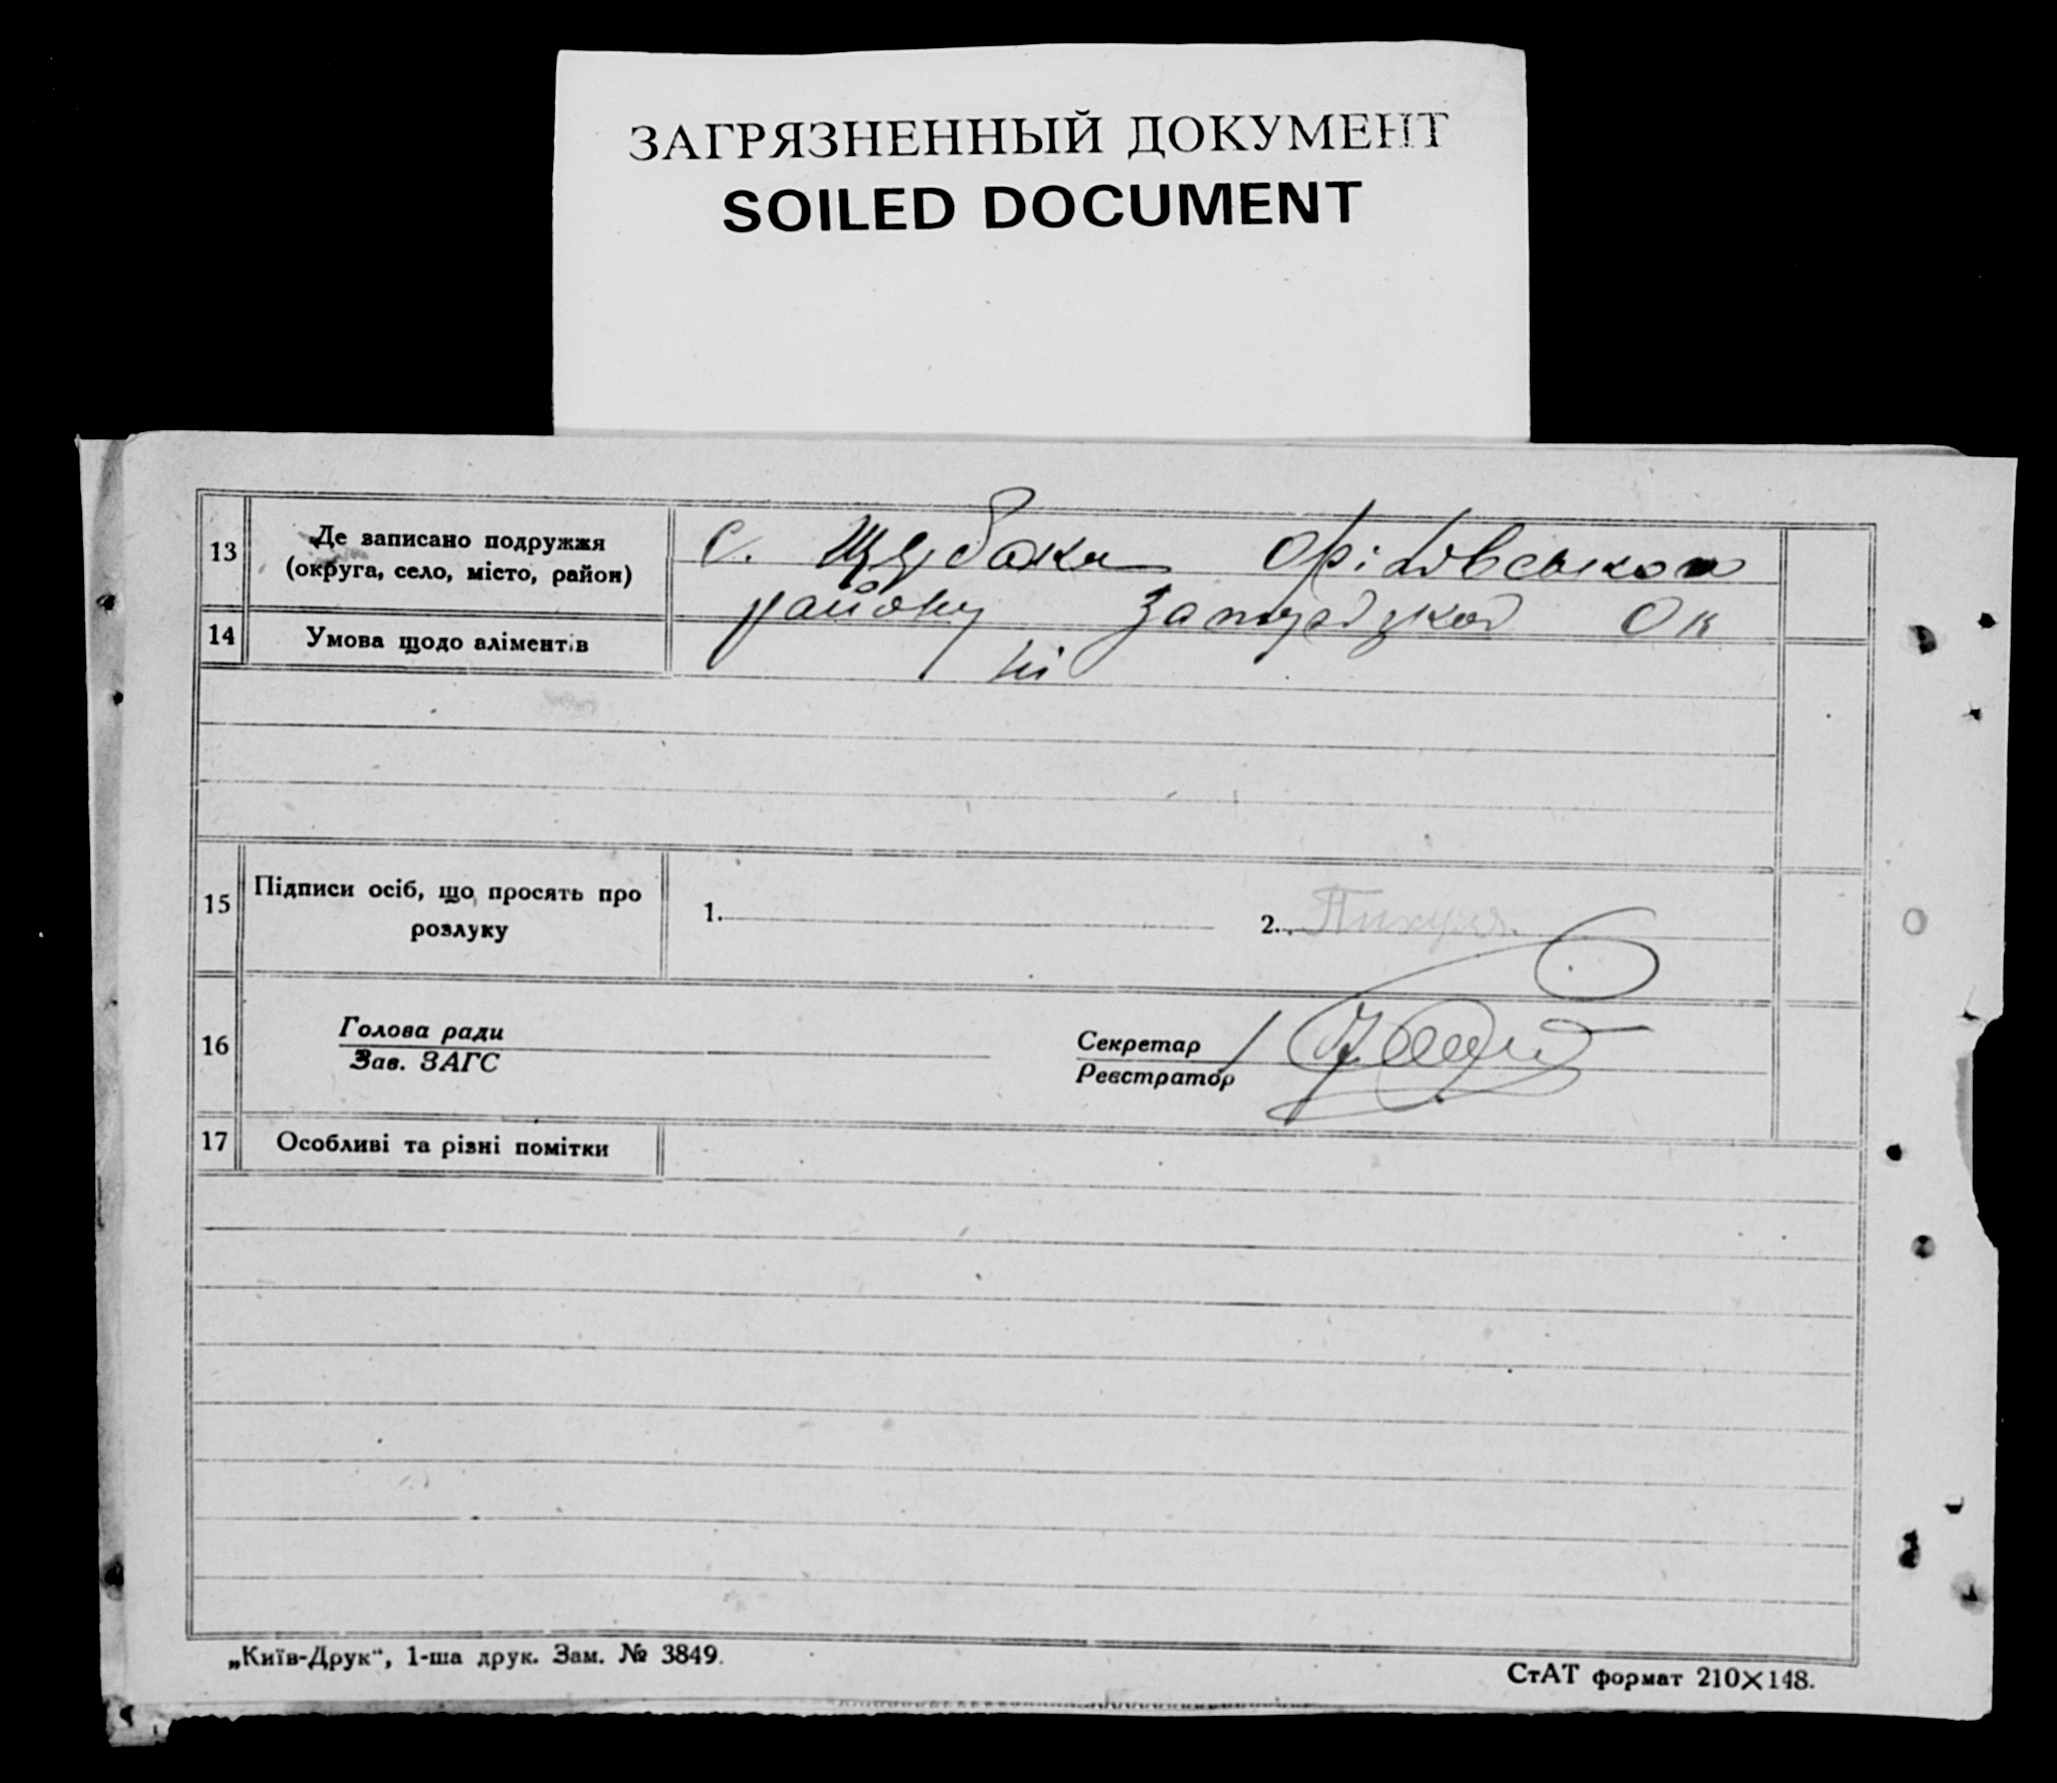 ЗАГРЯЗНЕННЫЙ ДОКУМЕНТ
SOILED DOCUMENT
13
Де записано подружжя
(округа, село, місто, район)
с. Щербаки Оріхівського
району Запорізької Ок
14
Умова щодо аліментів
ні
15
Підписи осіб, що просять про
розлуку
1.
2.
16
Голова ради
Зав. ЗАГС
Секретар
Реєстратор
17
Особливі та різні помітки
„Київ-Друк“, 1-ша друк. Зам. № 3849.
СтАТ формат 210×148.